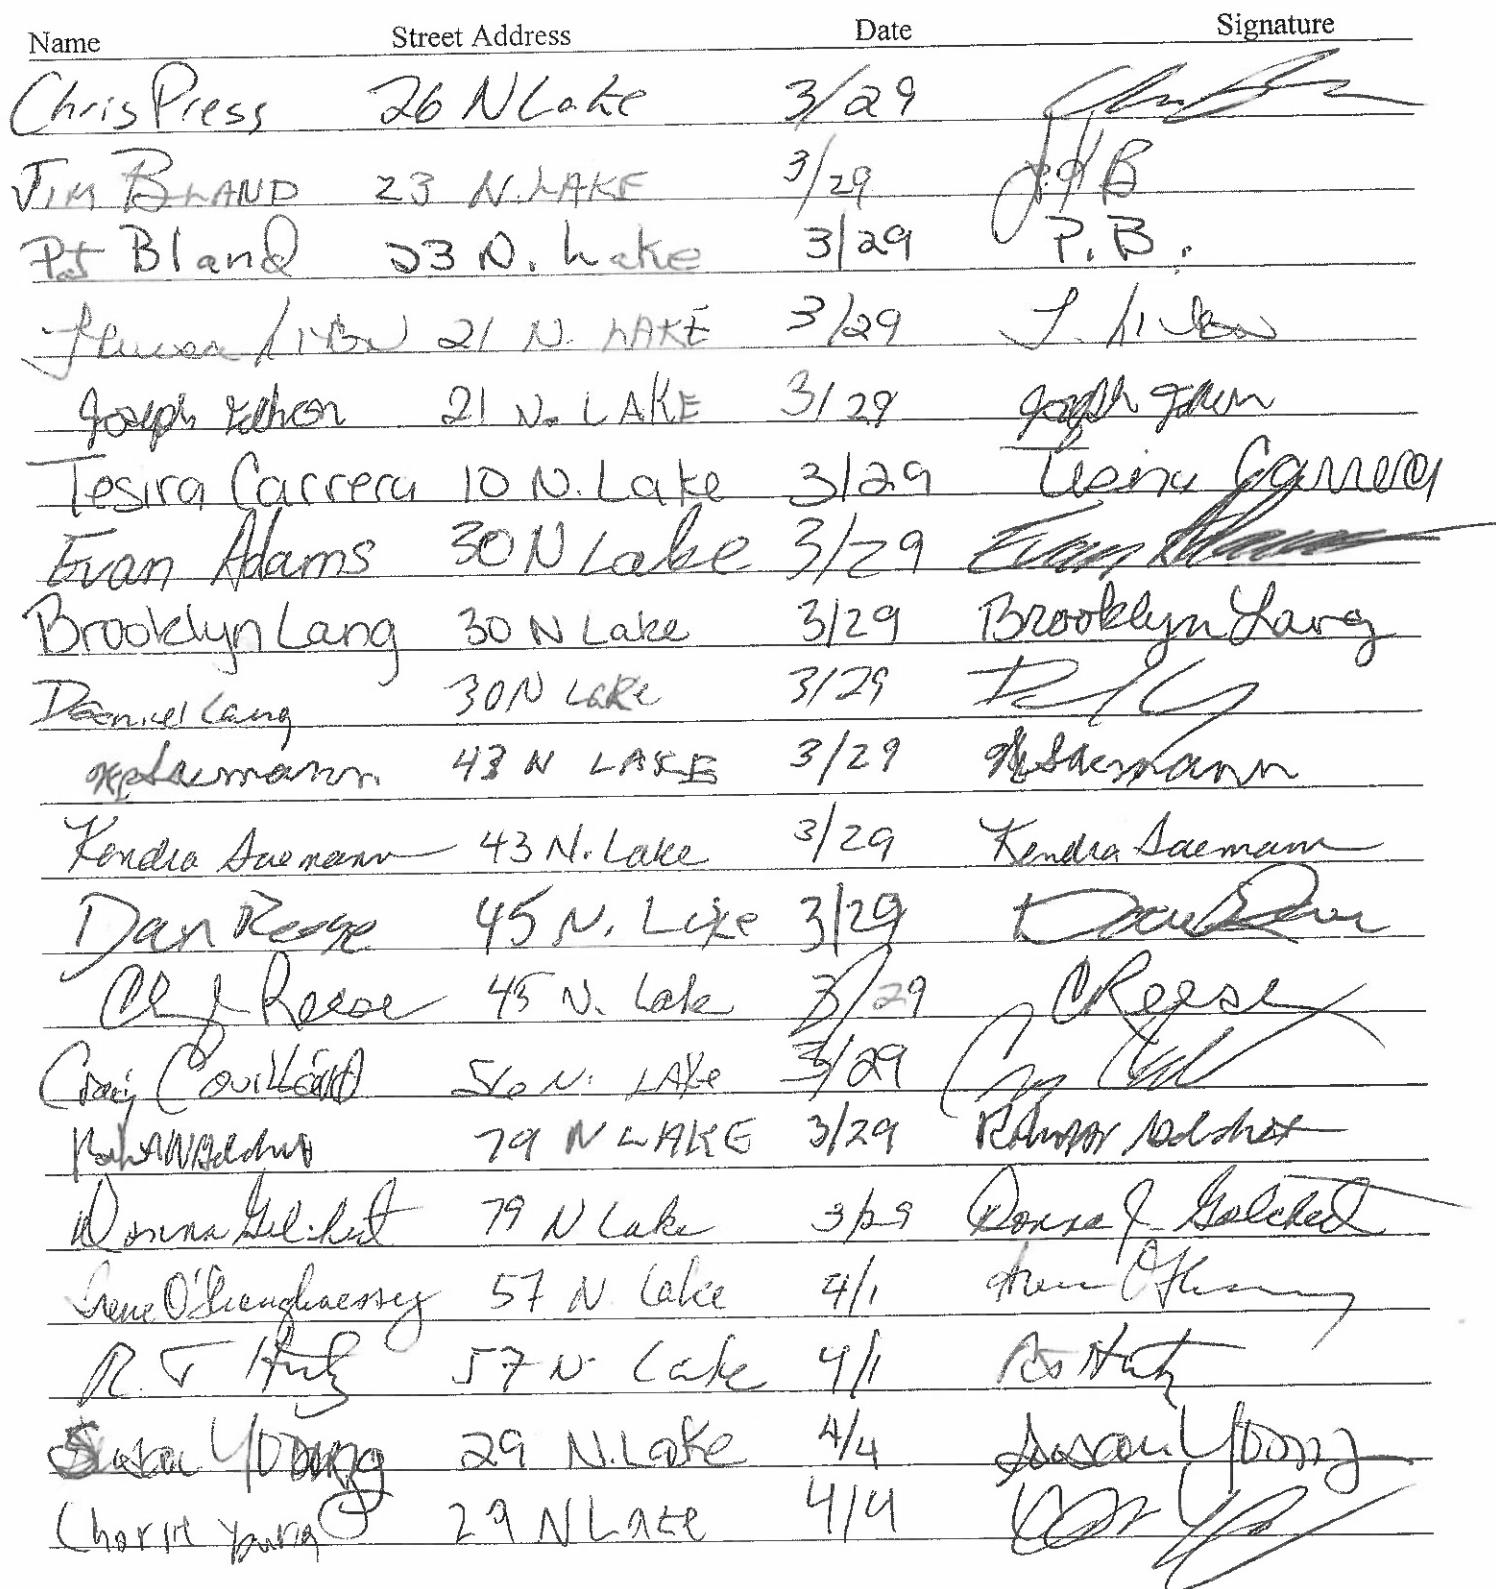 Name Street Address Date Signature
Chris Press 26 N Lake 3/29
JIM BLAND 23 N. LAKE 3/29 B
Pat Bland 23 N. Lake 3/29 P.B.
21 N. LAKE 3/29
Joseph 21 N. LAKE 3/29 Joseph
Tesira Carrera 10 N. Lake 3/29 Tesira Carrera
Evan Adams 30 N Lake 3/29 Evan Adams
Brooklyn Lang 30 N Lake 3/29 Brooklyn Lang
Daniel Lang 30 N Lake 3/29
Saemann 43 N LAKE 3/29 Saemann
Kendra Saemann 43 N. Lake 3/29 Kendra Saemann
Dan Reese 45 N. Lake 3/29
Reese 45 N. Lake 3/29 C Reese
Craig Couillard 56 N. LAKE 3/29
79 N LAKE 3/29
Donna Gilchrist 79 N Lake 3/29 Donna J Gilchrist
Irene O'Shaughnessey 57 N Lake 4/1
R. J 57 N Lake 4/1
Susan Young 29 N. Lake 4/4 Susan Young
Charlie Young 29 N Lake 4/4